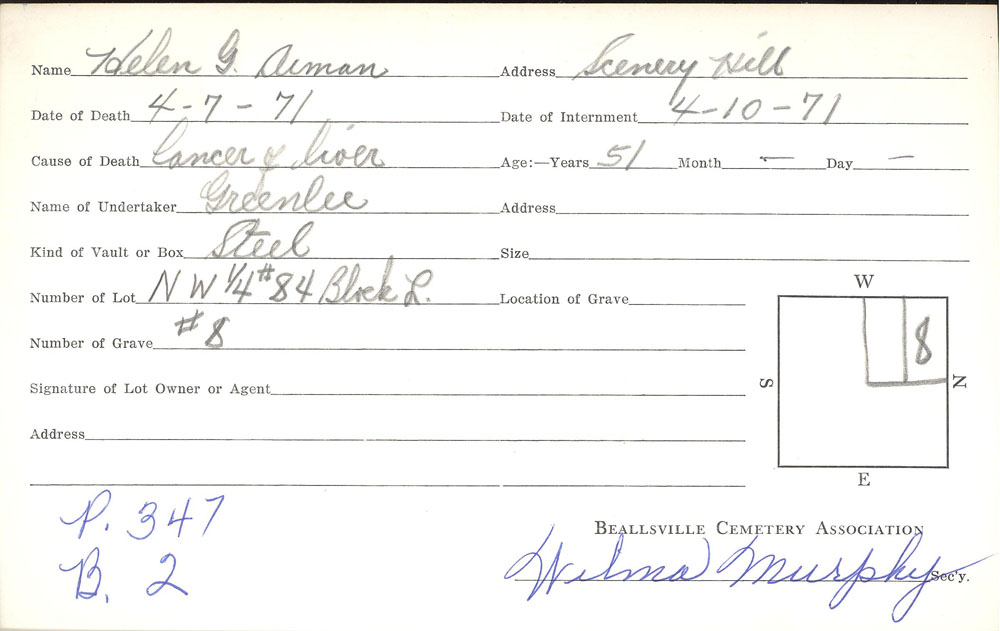 Name Helen G. Aiman Address Scenery Hill
Date of Death 4-7-71 Date of Internment 4-10-71
Cause of Death Cancer of liver Age:—Years 51 Month — Day —
Name of Undertaker Greenlee Address
Kind of Vault or Box Steel Size
Number of Lot NW 1/4 #84 Block L. Location of Grave
Number of Grave #8
Signature of Lot Owner or Agent
Address
W
S
8
N
E
P. 347
B. 2
BEALLSVILLE CEMETERY ASSOCIATION
Wilma Murphy Sec'y.